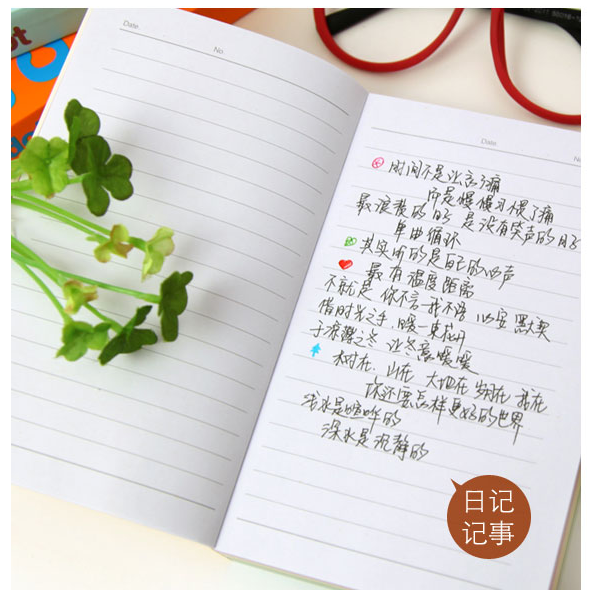 Date
No
Date
No
时间不是让 忘了痛
而是慢慢习惯了痛
最 的 是没有 声的
单曲循环
其实听的是自己的心声
最有温度距离
不就是 你不言 我不语 心安 默契
借时光之手 暖一束花开
于凉薄之冬 让冬意暖暖
树在. 山在 大地在 岁月在 我在
你还要怎样更好的世界
浅水是喧哗的
深水是沉静的
日记
记事